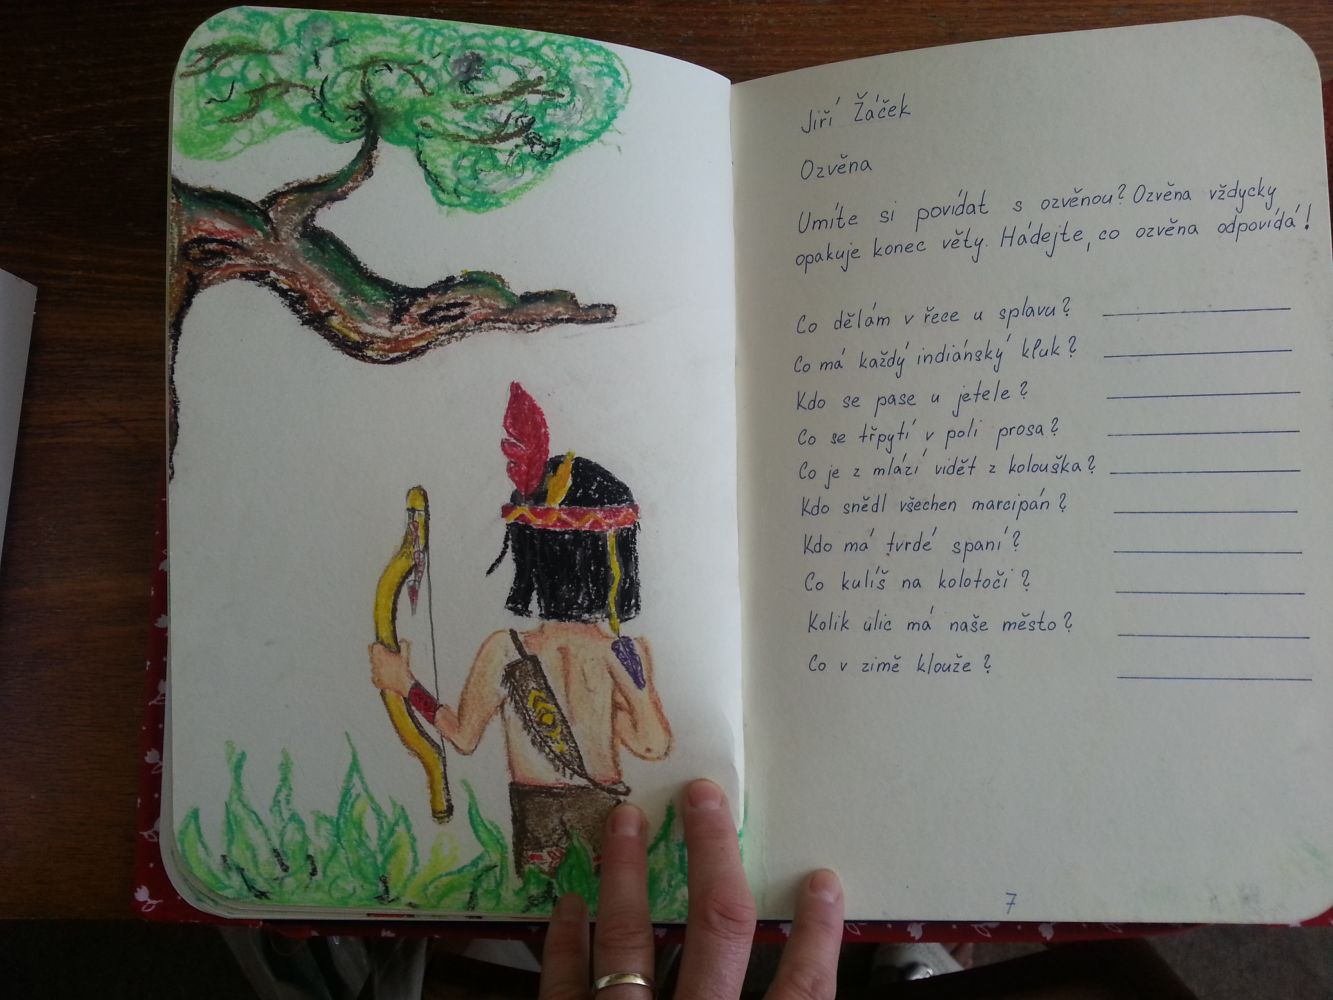 Jiří Žáček
Ozvěna
Umíte si povídat s ozvěnou? Ozvěna vždycky
opakuje konec věty. Hádejte, co ozvěna odpovídá!
Co dělám v řece u splavu?
Co má každý indiánský kluk?
Kdo se pase u jetele?
Co se třpytí v poli prosa?
Co je z mlází vidět z kolouška?
Kdo snědl všechen marcipán?
Kdo má tvrdé spaní?
Co kulíš na kolotoči?
Kolik ulic má naše město?
Co v zimě klouže?
7